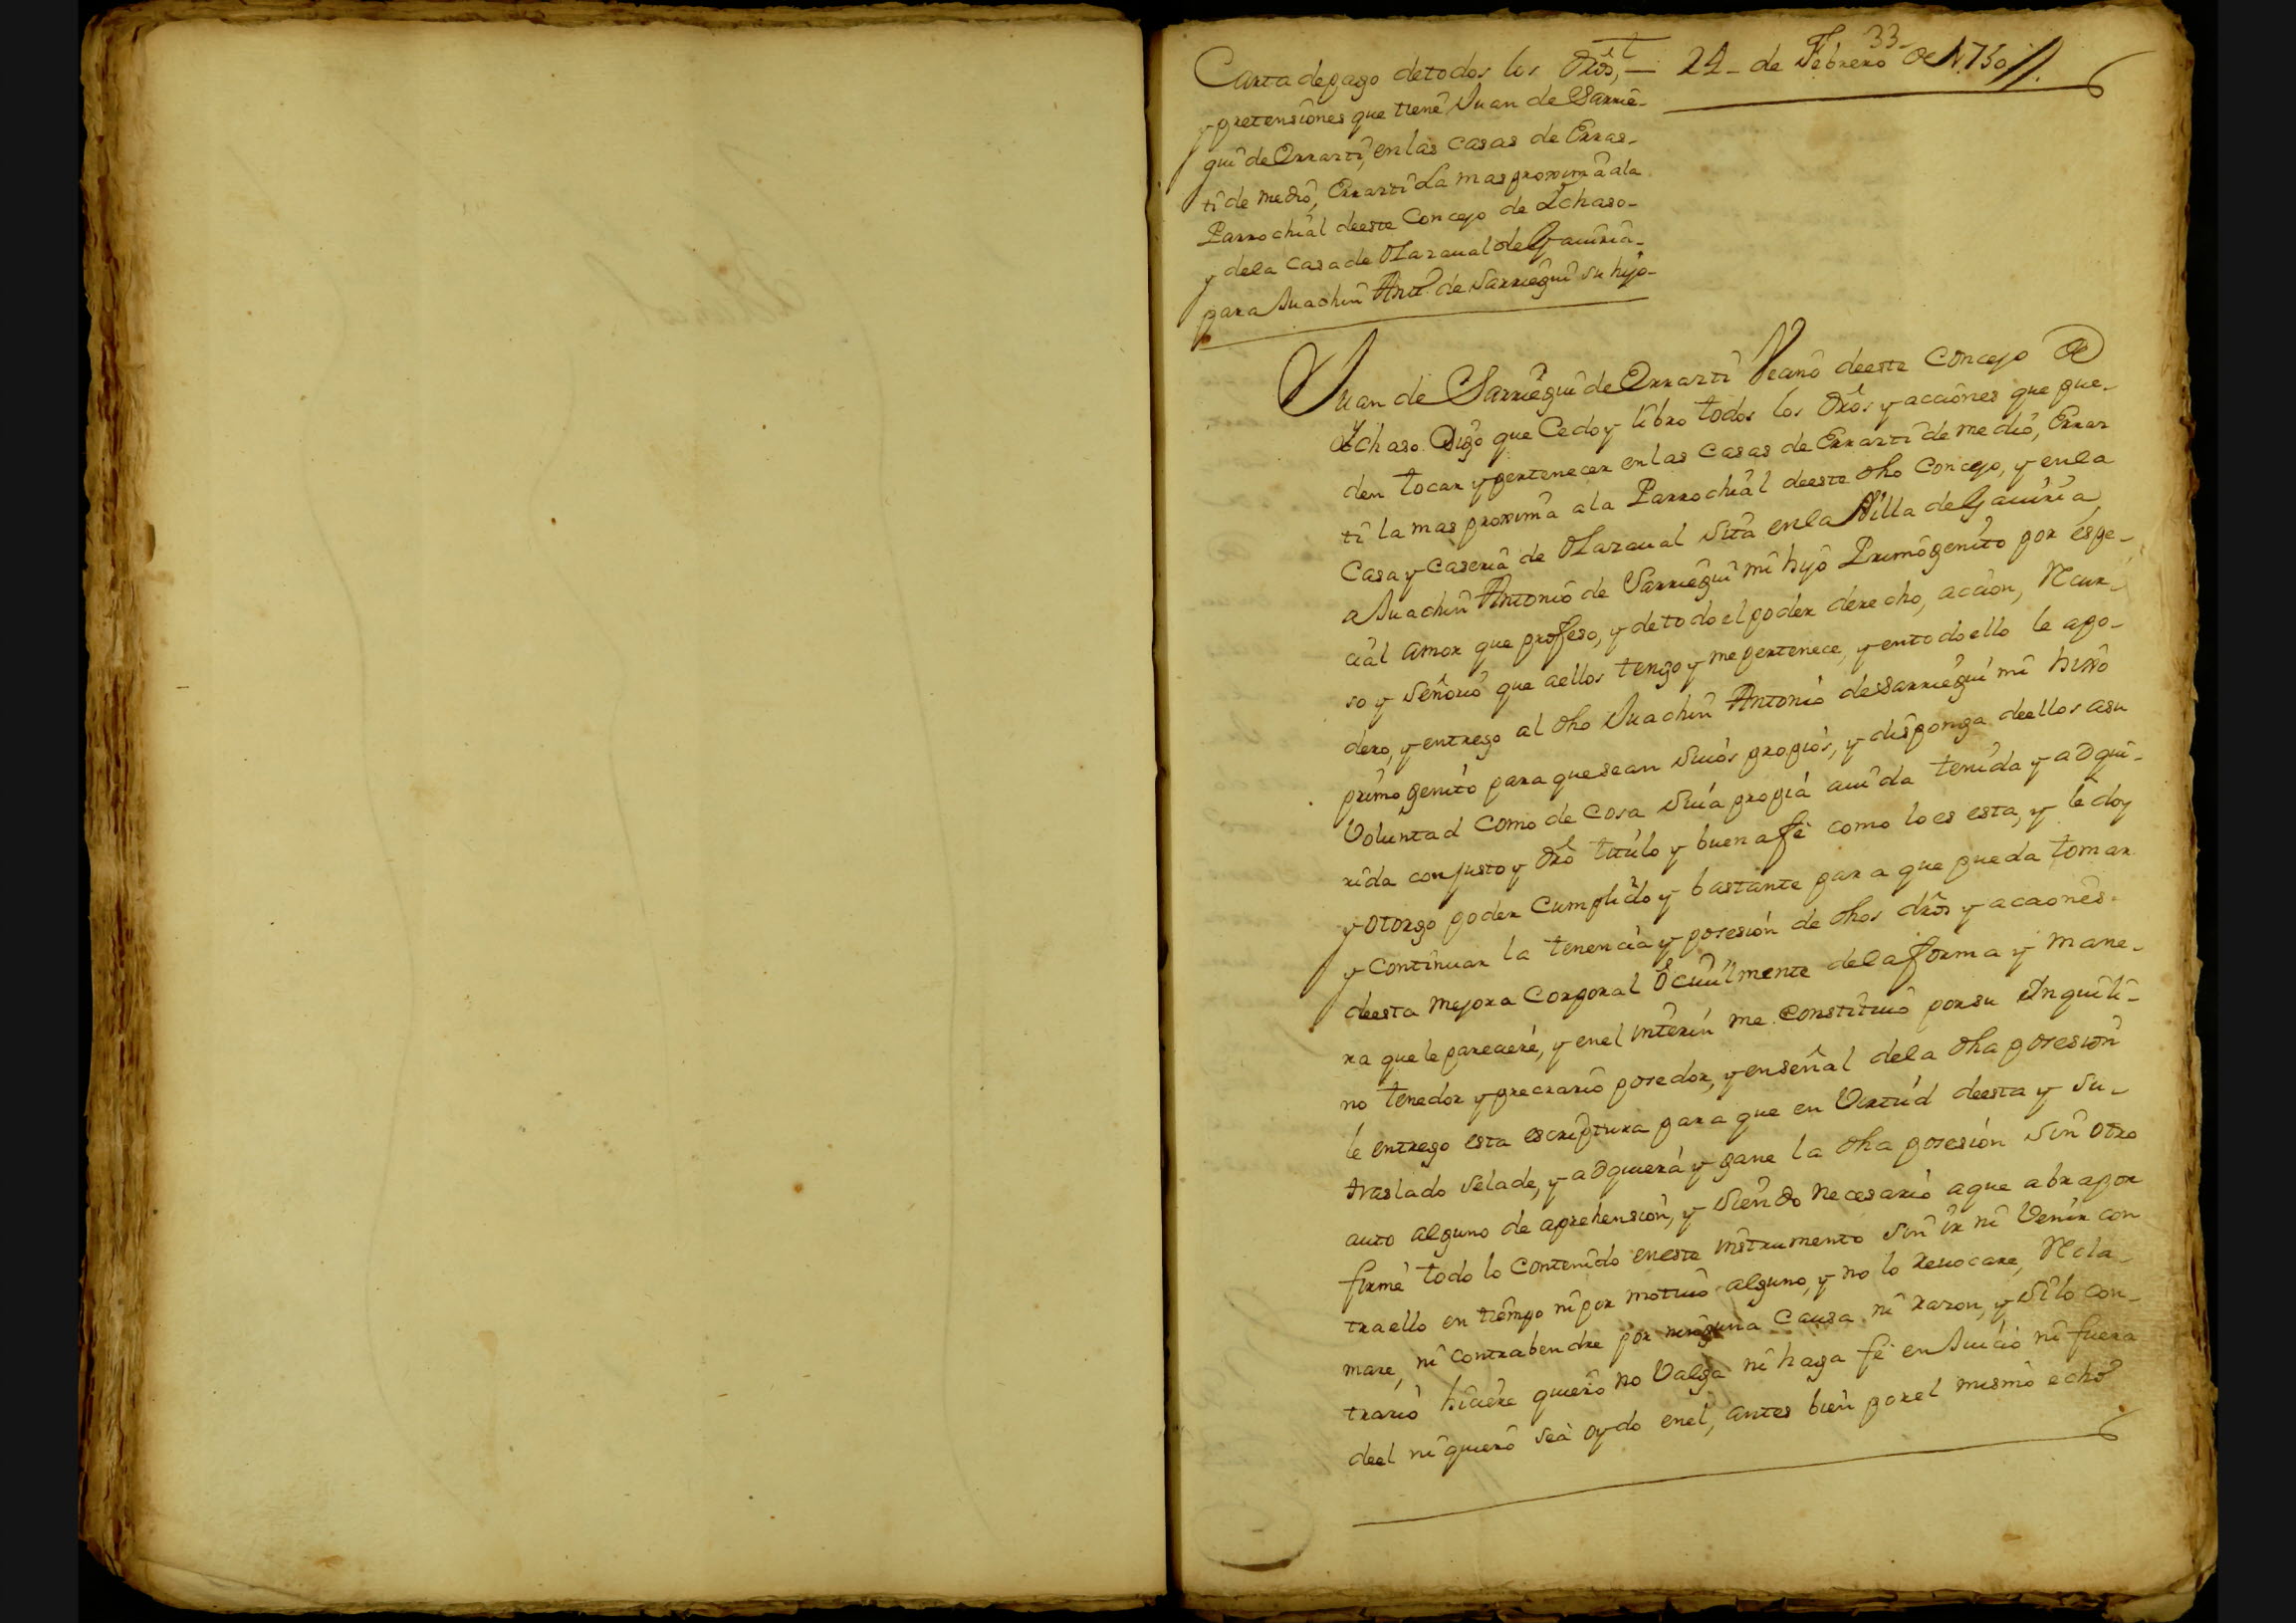 33
Carta de pago de todos los dros, — 24 de Febrero de 1750
y pretensiones que tiene Juan de Sarrie-
gui de Errarti, en las casas de Erras-
ti de medio, Errazti La mas proxima ala
Parrochial deeste Concejo de Ychaso-
y dela casa de OLazaual de Gauiria-
para Juachin Antt.º de Sarriegui su hijo-
Juan de Sarriegui de Errazti Vecino deeste Concejo de
Ychaso Digo que Cedo y libro todos los dros y acciones que pue-
den tocar y pertenecer en las Casas de Errazti de medio, Erraz
ti la mas proxima ala Parrochial deeste dho Concejo, y enla
Casa y Caseria de OLazaual sita en la Villa de Gauiria
a Juachin Antonio de Sarriegui mi hijo Primogenito por espe-
cial amor que profeso, y de todo el poder derecho, accion, Recur-
so y señorio que aellos tengo y me pertenece, y entodo ello le apo-
dero, y entrego al dho Juachin Antonio de Sarriegui mi hixo
primogenito para que sean suios propios, y disponga deellos asu
Voluntad como de cosa suia propia auida tenida y adqui-
rida con justo y dro titulo y buena fè como lo es esta, y le doy
y otorgo poder Cumplido y bastante para que pueda tomar
y continuar la tenencia y posesion de dhos dros y acciones
deesta mejora Corporal o ciuilmente dela forma y mane-
ra que le pareciere, y enel interin me constituio por su Inquili-
no tenedor y precrario posedor, y en señal dela dha posesion
le entrego esta escriptura para que en Virtud deesta y su-
traslado sela de, y adquiera y gane la dha posesion sin otro
auto alguno de aprehension, y siendo necesario aque abra por
firme todo lo contenido eneste instrumento sin ir ni Venir con
traello en tiempo ni por motiuo alguno, y no lo reuocare, Recla-
mare, ni contrabendre por ninguna causa ni razon, y si lo con-
trario hiciere quiero no Valga ni haga fè en Juicio ni fuera
deel ni quiero sea oydo enel, antes bien por el mismo echo